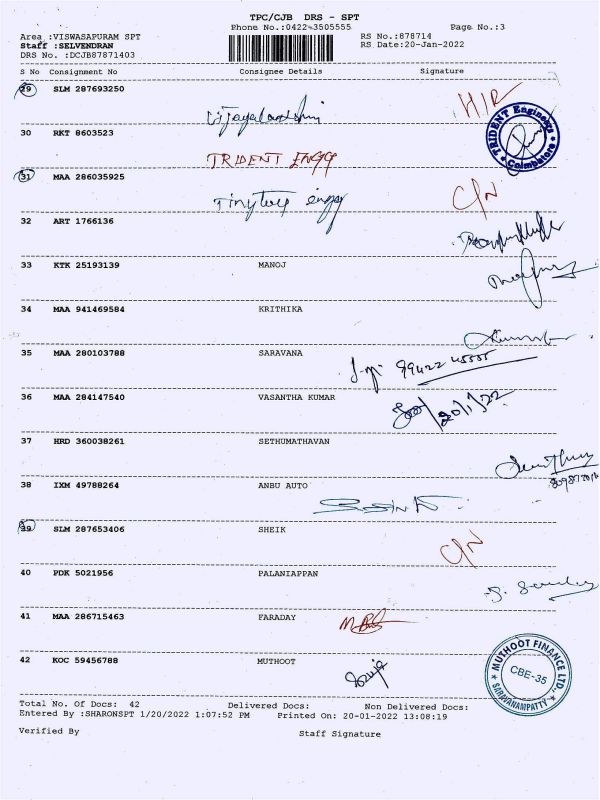 TPC/CJB DRS - SPT
Phone No.:0422-3505555 Page No.:3
Area :VISWASAPURAM SPT RS No.:878714
Staff :SELVENDRAN RS Date:20-Jan-2022
DRS No. :DCJB87871403
S No Consignment No Consignee Details Signature
29 SLM 287693250
TRIDENT Engineers Coimbatore
30 RKT 8603523
TRIDENT ENGG
31 MAA 286035925 C/N
32 ART 1766136
33 KTK 25193139 MANOJ
34 MAA 941469584 KRITHIKA
35 MAA 280103788 SARAVANA
99422 45555
36 MAA 284147540 VASANTHA KUMAR
20/1/22
37 HRD 360038261 SETHUMATHAVAN
38 IXM 49788264 ANBU AUTO
39 SLM 287653406 SHEIK
C/N
40 PDK 5021956 PALANIAPPAN
41 MAA 286715463 FARADAY
42 KOC 59456788 MUTHOOT
MUTHOOT FINANCE LTD., CBE-35 SARAVANAMPATTY
Total No. Of Docs: 42 Delivered Docs: Non Delivered Docs:
Entered By :SHARONSPT 1/20/2022 1:07:52 PM Printed On: 20-01-2022 13:08:19
Verified By Staff Signature